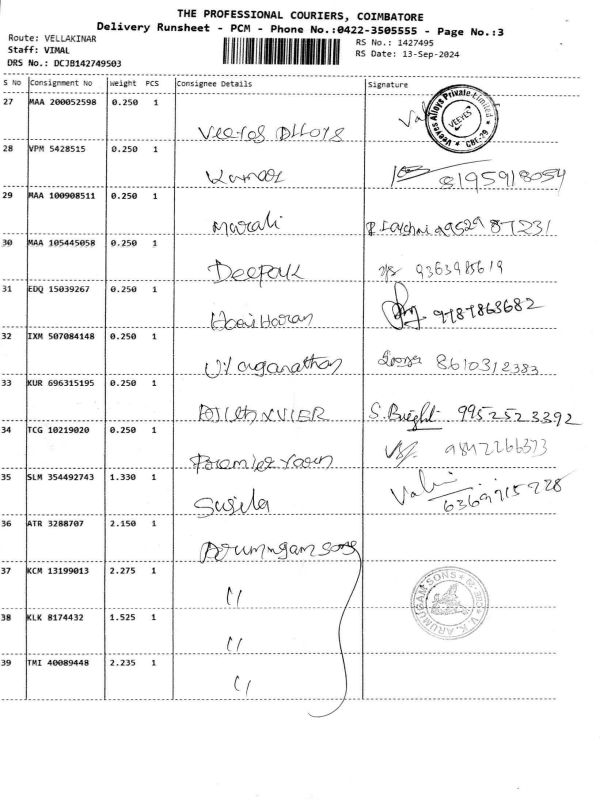 THE PROFESSIONAL COURIERS, COIMBATORE
Delivery Runsheet - PCM - Phone No.:0422-3505555 - Page No.:3
Route: VELLAKINAR
Staff: VIMAL
DRS No.: DCJB142749503
RS No.: 1427495
RS Date: 13-Sep-2024
S No Consignment No Weight PCS Consignee Details Signature
27 MAA 200052598 0.250 1
Veeyes Alloys Private Limited
VEEYES
CBE-29
28 VPM 5428515 0.250 1
8195918054
29 MAA 100908511 0.250 1
Murali
30 MAA 105445058 0.250 1
Deepak 9363985619
31 EDQ 15039267 0.250 1
Hariharan 9787863682
32 IXM 507084148 0.250 1
8610312383
33 KUR 696315195 0.250 1
XVIER S. Bright 9952523392
34 TCG 10219020 0.250 1
Premier
35 SLM 354492743 1.330 1
Susila
36 ATR 3288707 2.150 1
Arumugam sons
37 KCM 13199013 2.275 1
"
V.K. ARUMUGAM SONS
38 KLK 8174432 1.525 1
"
39 TMI 40089448 2.235 1
"